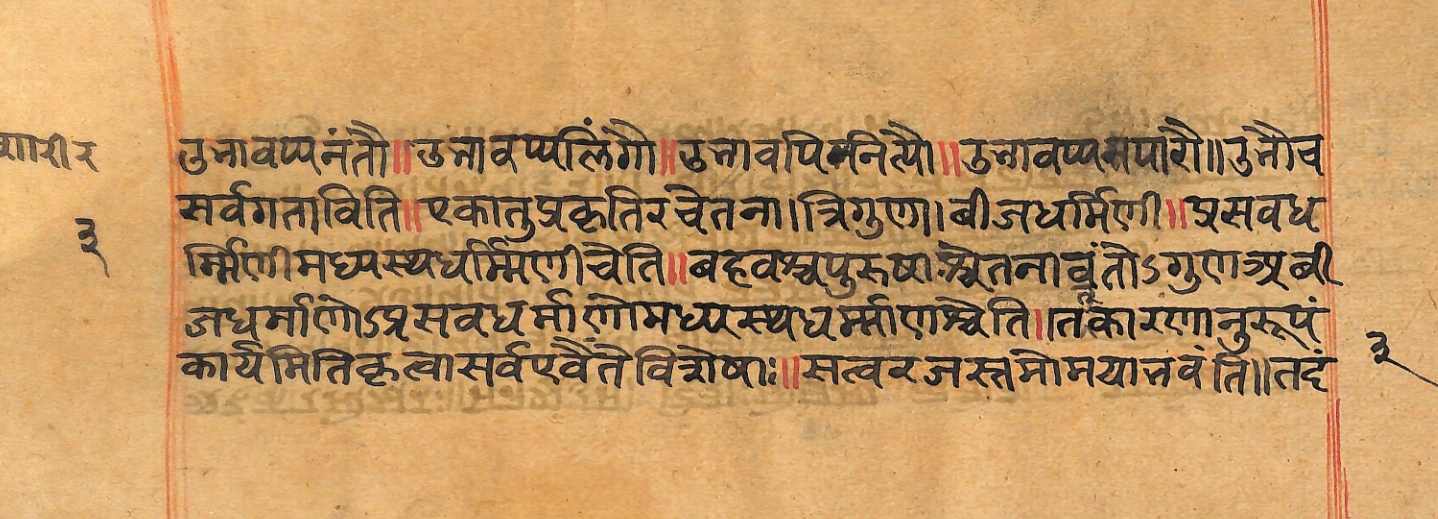 शारीर
उभावप्यनंतौ॥उभावप्यलिंगौ॥उभावपिमनित्यौ॥उभावप्यमपारौ॥उभौच
सर्वगताविति॥एकातुप्रकृतिरचेतना।त्रिगुणा।बीजधर्मिणी॥प्रसवध
३
र्म्मिणीमध्यस्थधर्म्मिणीचेति॥बहवश्चपुरुषाश्चेतनावंतोऽगुणाअबी
जधर्माणोऽप्रसवधर्माणोमध्यस्थधर्म्माणश्चेति॥तत्रकारणानुरूपं
कार्यमितिकृत्वासर्वएवैतेविशेषाः॥सत्वरजस्तमोमयाभवंति॥तदं
३